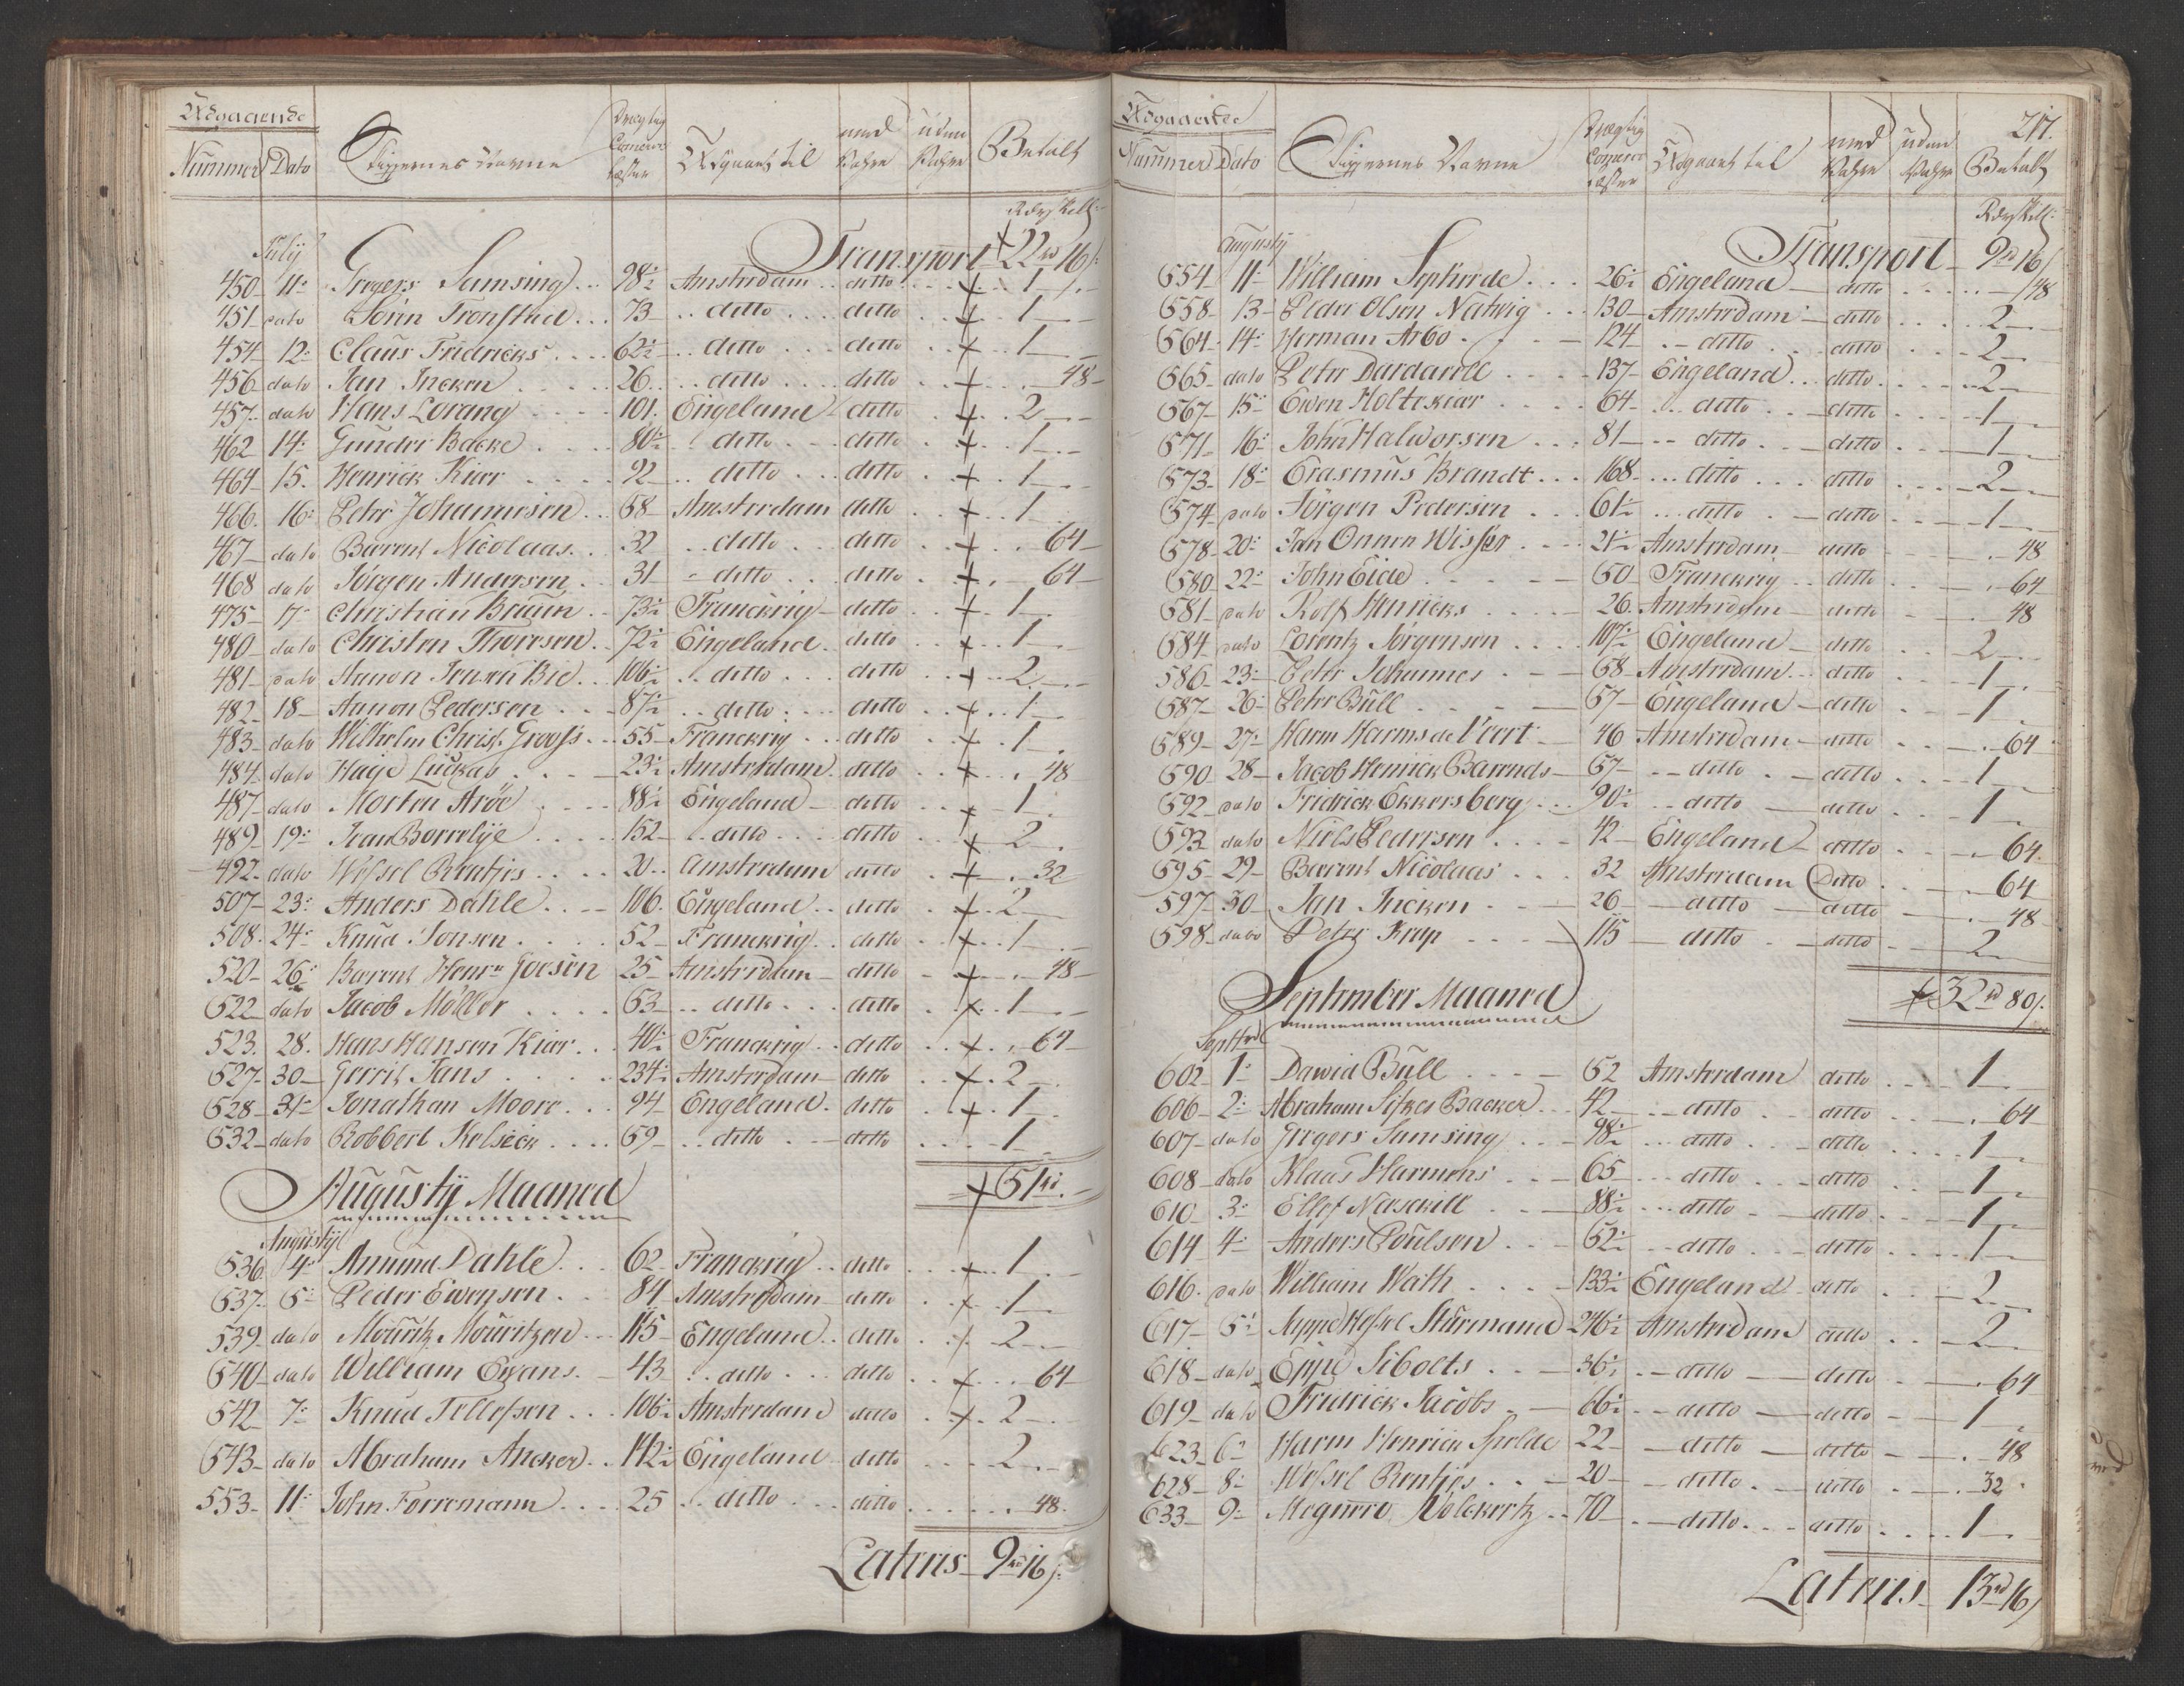 Udgaaende
Nummer Dato Skippernes Navne Drægtig Comerce Læster Udgaaet til med Ladn uden Ladn Betalt
Rdr skill:
July Transport 22 rd 16 s:
450 11: Gregers Samsing 98½ Amsterdam ditto 1
451 dato Sörin Tronstad 73 ditto ditto 1
454 12: Claus Fridricks 62½ ditto ditto 1
456 dato Jan Incken 26 ditto ditto 48
457 dato Hans Lorang 101 Engeland ditto 2
462 14: Gunder Backe 80½ ditto ditto 1
464 15. Henrick Kiær 92 ditto ditto 1
466 16: Peter Johannesen 58 Amsterdam ditto 1
467 dato Barent Nicolaas 32 ditto ditto 64
468 dato Jörgen Andersen 31 ditto ditto 64
475 17 Christian Bruun 73½ Franckrig ditto 1
480 dato Christen Thoresen 72½ Engeland ditto 1
481 dato Aanon Bie 106½ ditto ditto 2
482 18 Aanon Pedersen 87½ ditto ditto 1
483 dato Wilhelm Christ. Grooss 55 Franckrig ditto 1
484 dato Haije Luckas 23½ Amsterdam ditto 48
487 dato Morten Aröe 88½ Engeland ditto 1
489 19: Ivar Borrelije 152 ditto ditto 2
492 dato Wessel Rentjes 20 Amsterdam ditto 32
507 23: Anders Dahle 106 Engeland ditto 2
508 24: Knud Jonsen 52 Franckrig ditto 1
520 26: Barent Henr: Joesen 25 Amsterdam ditto 48
522 dato Jacob Möller 53 ditto ditto 1
523 28. Hans Hansen Kiær 40½ Franckrig ditto 64
527 30 Gerrit Jans 234½ Amsterdam ditto 2
528 31 Jonathan Moore 94 Engeland ditto 1
532 dato Robbert Kelsick 59 ditto ditto 1
51 rd.
Augustij Maaned
Augustij
536 4: Amund Dahle 62 Franckrig ditto 1
537 5: Peder Evensen 84 Amsterdam ditto 1
539 dato Mouritz Mouritzen 115 Engeland ditto 2
540 dato William Evans 43 ditto ditto 64
542 7: Knud Tellefsen 106½ Amsterdam ditto 2
543 dato Abraham Ancker 142½ Engeland ditto 2
553 11: John Forremann 25 ditto ditto 48
Lateris 9 rd 16 s:
Udgaaende 217.
Nummer Dato Skippernes Navne Drægtig Comerce Læster Udgaaet til med Ladn uden Ladn Betalt
Rdr skill:
Augustij Transport 9 rd 16 s
554 11 William Sepherde 26½ Engeland ditto 48
558 13 Peder Olsen Natvig 130 Amsterdam ditto 2
564 14: Herman Arbo 124 ditto ditto 2
565 dato Peter Dardavell 137 Engeland ditto 2
567 15: Even Holtekiær 64 ditto ditto 1
571 16: John Halvorsen 81 ditto ditto 1
573 18: Erasmus Brandt 168 ditto ditto 2
574 dato Jörgen Pedersen 61½ ditto ditto 1
578 20: Jan Onnen Visser 21½ Amsterdam ditto 48
580 22: John Eide 50 Franckrig ditto 64
581 dato Rolf Henricks 26 Amsterdam ditto 48
584 dato Lorentz Jörgensen 107½ Engeland ditto 2
586 23: Peter Johannes 58 Amsterdam ditto 1
587 26: Peter Bull 57 Engeland ditto 1
589 27: Harm Harms de Vert 46 Amsterdam ditto 64
590 28 Jacob Henrick Barends 57 ditto ditto 1
592 dato Fridrick Ekkersberg 90½ ditto ditto 1
593 dato Niels Pedersen 42 Engeland ditto 64
595 29 Barent Nicolaas 32 Amsterdam Ditto 64
597 30 Jan Incken 26 ditto ditto 48
598 dato Peter Krap 115 ditto ditto 2
32 rd 80 s.
September Maaned
Septbr
602 1: David Bull 52 Amsterdam ditto 1
606 2: Abraham Sifkes Backer 42 ditto ditto 64
607 dato Gregers Samsing 98½ ditto ditto 1
608 dato Klaas Harmens 65 ditto ditto 1
610 3: Ellef Naschill 88½ ditto ditto 1
614 4: Anders Poulsen 52½ ditto ditto 1
616 dato William Wath 133½ Engeland ditto 2
617 5: Hessel Stürmand 216½ Amsterdam ditto 2
618 dato Eppe Sibolts 36½ ditto ditto 64
619 dato Fredrick Jacobs 66½ ditto ditto 1
623 6: Harm Henrich Spelde 22 ditto ditto 48
628 8: Wessel Rentjes 20 ditto ditto 32
633 9: Volckertz 70 ditto ditto 1
Lateris 13 rd 16 s